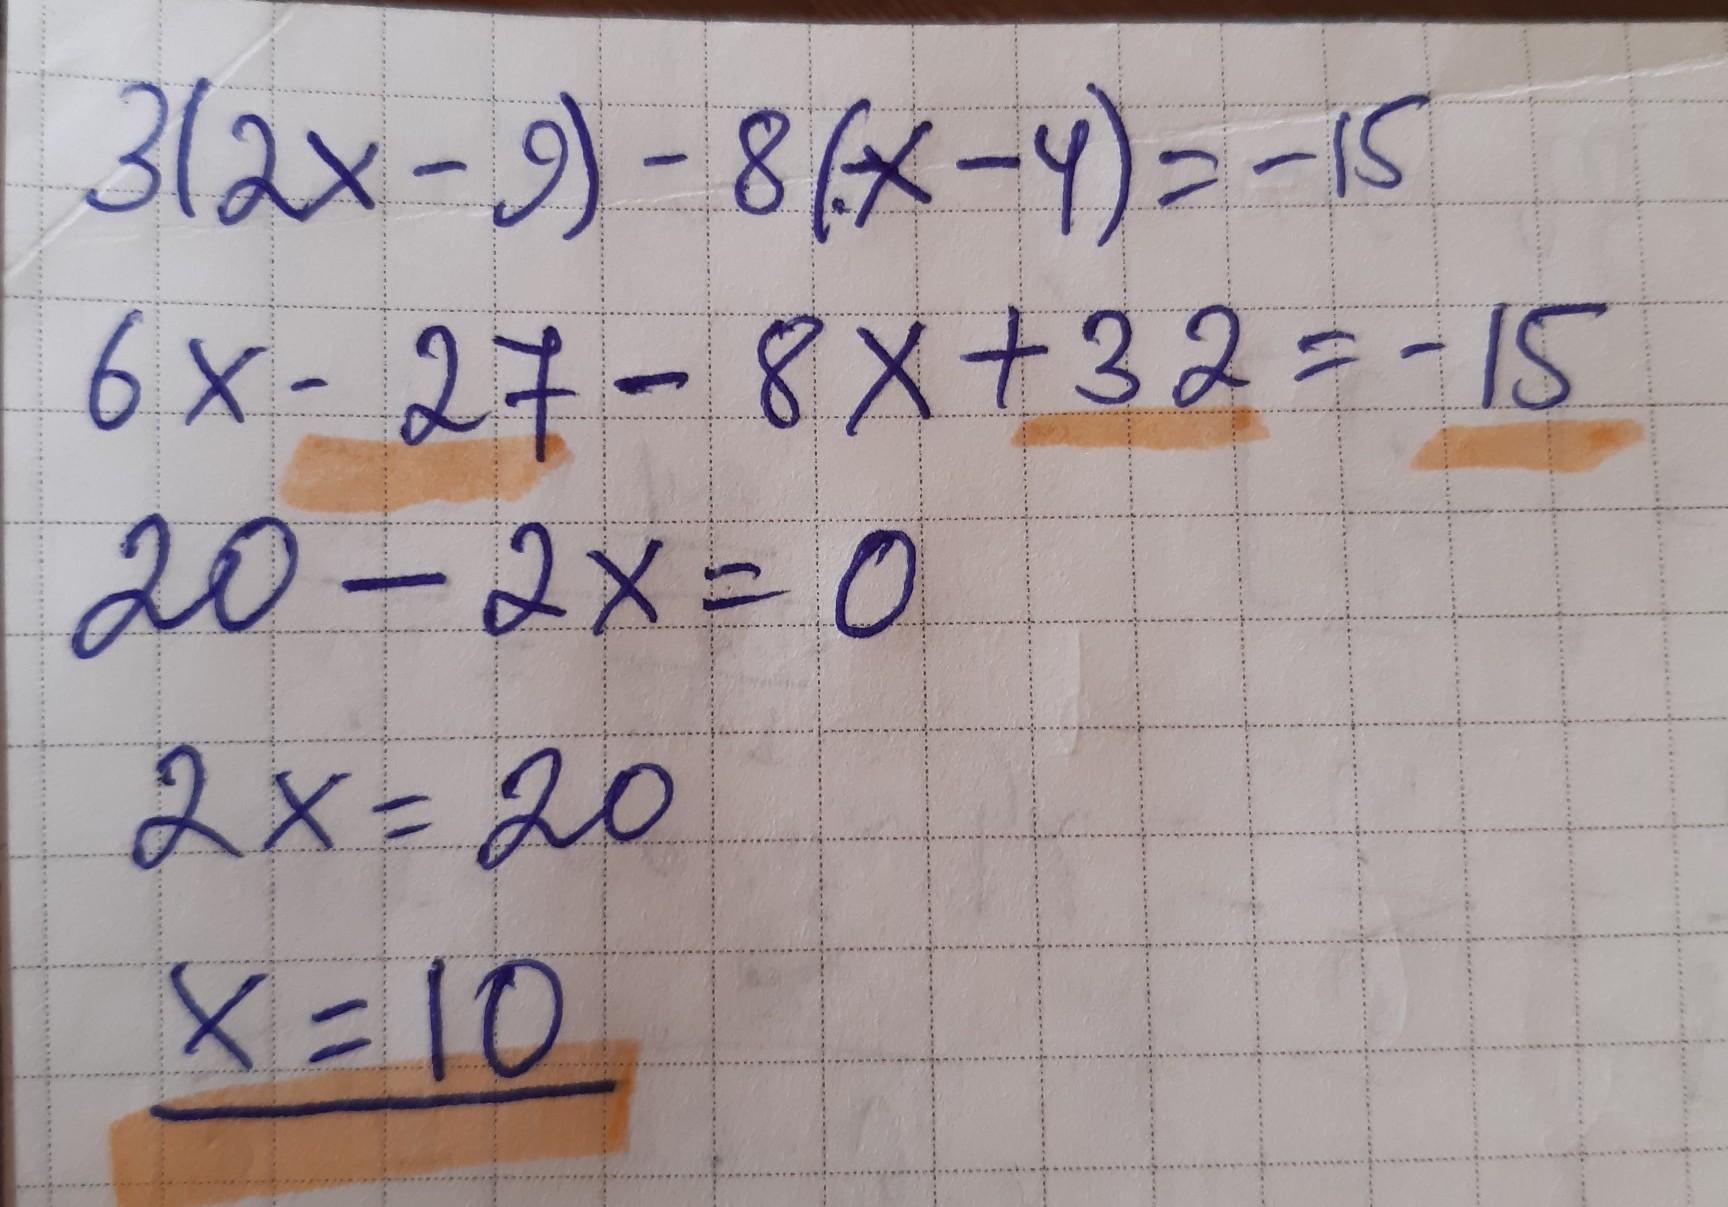 3(2x - 9) - 8(x - 4) = -15
6x - 27 - 8x + 32 = -15
20 - 2x = 0
2x = 20
x = 10